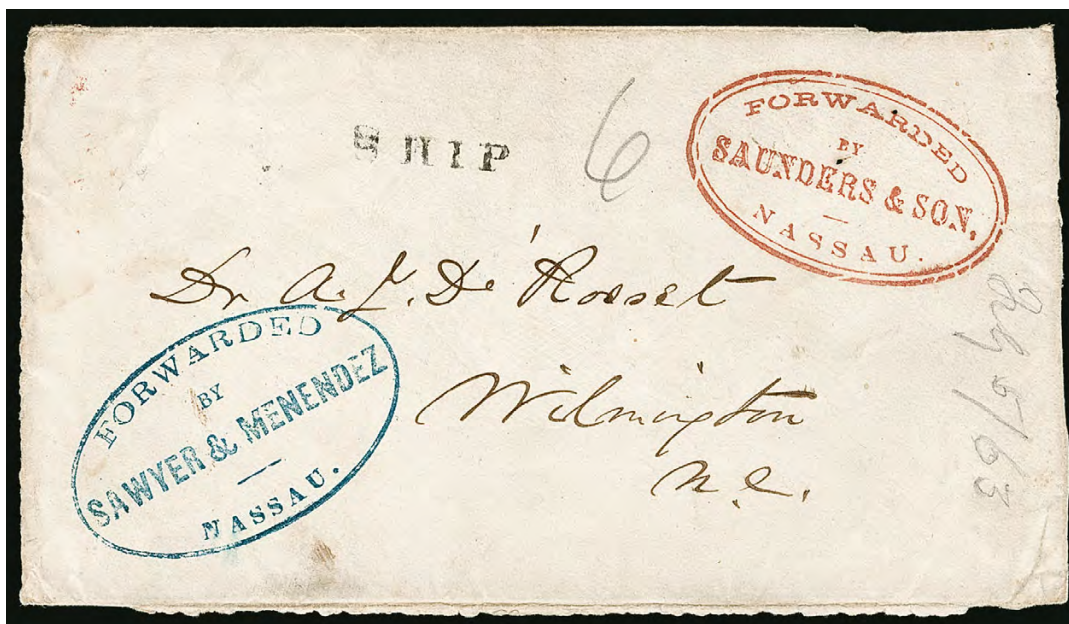 SHIP
6
FORWARDED
BY
SAUNDERS & SON,
NASSAU.
Dr A. J. De' Rosset
Wilmington
N.C.
FORWARDED
BY
SAWYER & MENENDEZ
NASSAU.
5/63